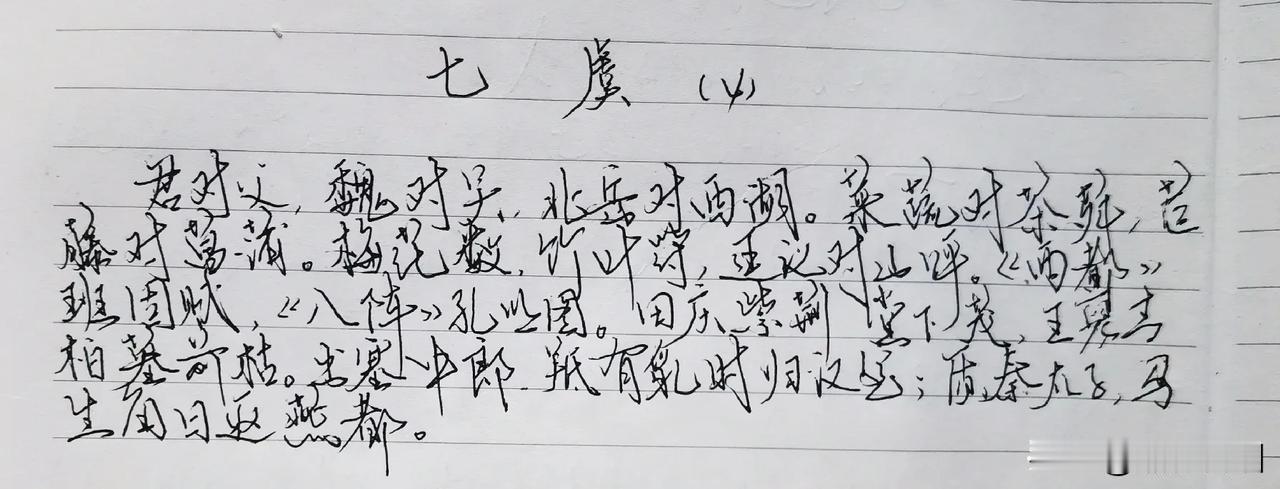 七 虞 (4)
君对父, 魏对吴, 北岳对西湖。菜蔬对茶荈, 苣
藤对菖蒲。梅花数, 竹叶符, 廷议对山呼。《两都》
班固赋, 《八阵》孔明图。田庆紫荆堂下茂, 王裒青
柏墓前枯。出塞中郎, 羝有乳时归汉室; 质秦太子, 马
生角日返燕都。